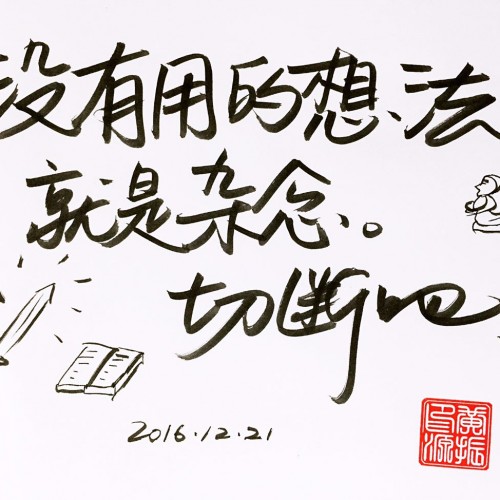 没有用的想法
就是杂念。
切断吧
2016.12.21
黄振
印源